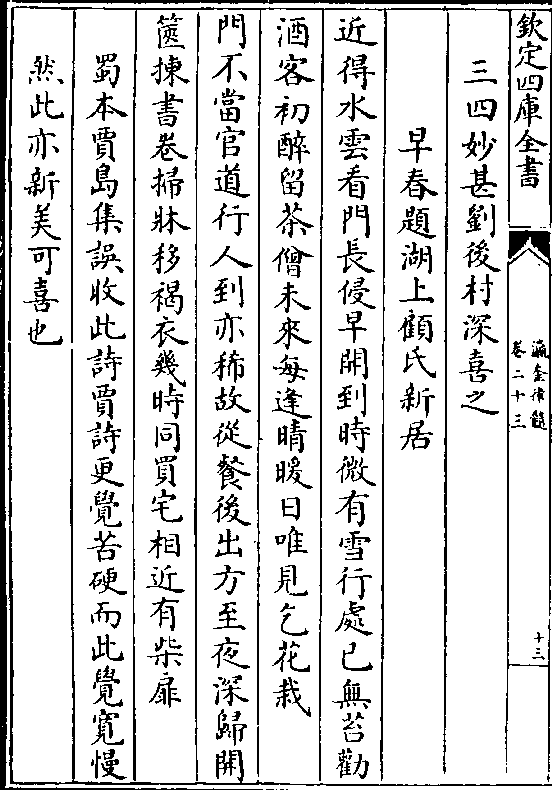 欽定四庫全書
瀛奎律髓
卷二十三
十三
三四妙甚劉後村深喜之
早春題湖上顧氏新居
近得水雲看門長侵早開到時微有雪行處已無苔勸
酒客初醉留茶僧未來每逢晴暖日唯見乞花栽
門不當官道行人到亦稀故從餐後出方至夜深歸開
篋揀書卷掃牀移褐衣幾時同買宅相近有柴扉
蜀本賈島集誤收此詩賈詩更覺苦硬而此覺寛慢
然此亦新美可喜也